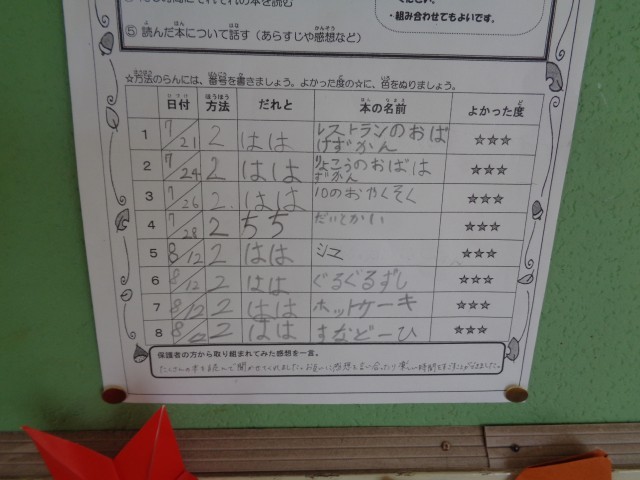 ・組み合わせてもよいです。
⑤ 読んだ本について話す（あらすじや感想など）
☆方法のらんには、番号を書きましょう。よかった度の☆に、色をぬりましょう。
日付 方法 だれと 本の名前 よかった度
1 7/21 2 はは レストランのおばけずかん ☆☆☆
2 7/24 2 はは りょこうのおばけずかん ☆☆☆
3 7/26 2. はは 10のおやくそく ☆☆☆
4 7/28 2 ちち ☆☆☆
5 8/12 2 はは ☆☆☆
6 8/12 2 はは ぐるぐるずし ☆☆☆
7 8/12 2 はは ホットケーキ ☆☆☆
8 8/12 2 はは すなどーひ ☆☆☆
保護者の方から取り組まれてみた感想を一言。
たくさんの本を読んで聞かせてくれました。お互いに感想を言い合ったり楽しい時間をすごすことができました。